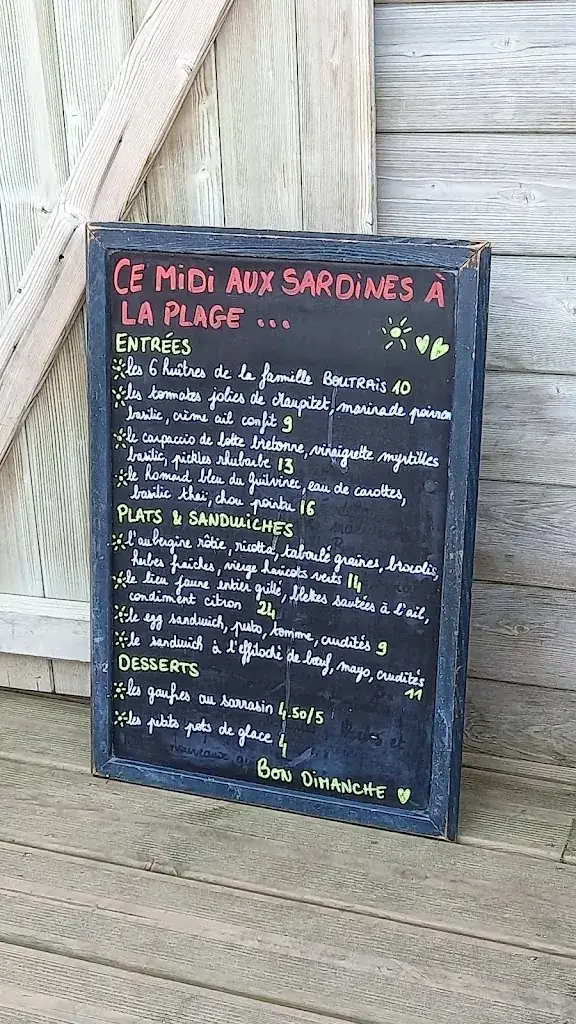 CE MIDI AUX SARDINES À
LA PLAGE ...
ENTRÉES
les 6 huîtres de la famille BOUTRAIS 10
les tomates jolies de
marinade poivron
basilic, crème ail confit 9
le carpaccio de lotte bretonne, vinaigrette myrtilles
basilic, pickles rhubarbe 13
le homard bleu du guilvinec, eau de carottes,
basilic thaï, chou pointu 16
PLATS & SANDWICHES
l'aubergine rôtie, ricotta, taboulé graines, brocolis,
herbes fraîches, vierge haricots verts 14
le lieu jaune entier grillé, blettes sautées à l'ail,
condiment citron 24
le egg sandwich, pesto, tomme, crudités 9
le sandwich à l'effiloché de bœuf, mayo, crudités
11
DESSERTS
les gaufres au sarrasin 4.50/5
les petits pots de glace 4
BON DIMANCHE